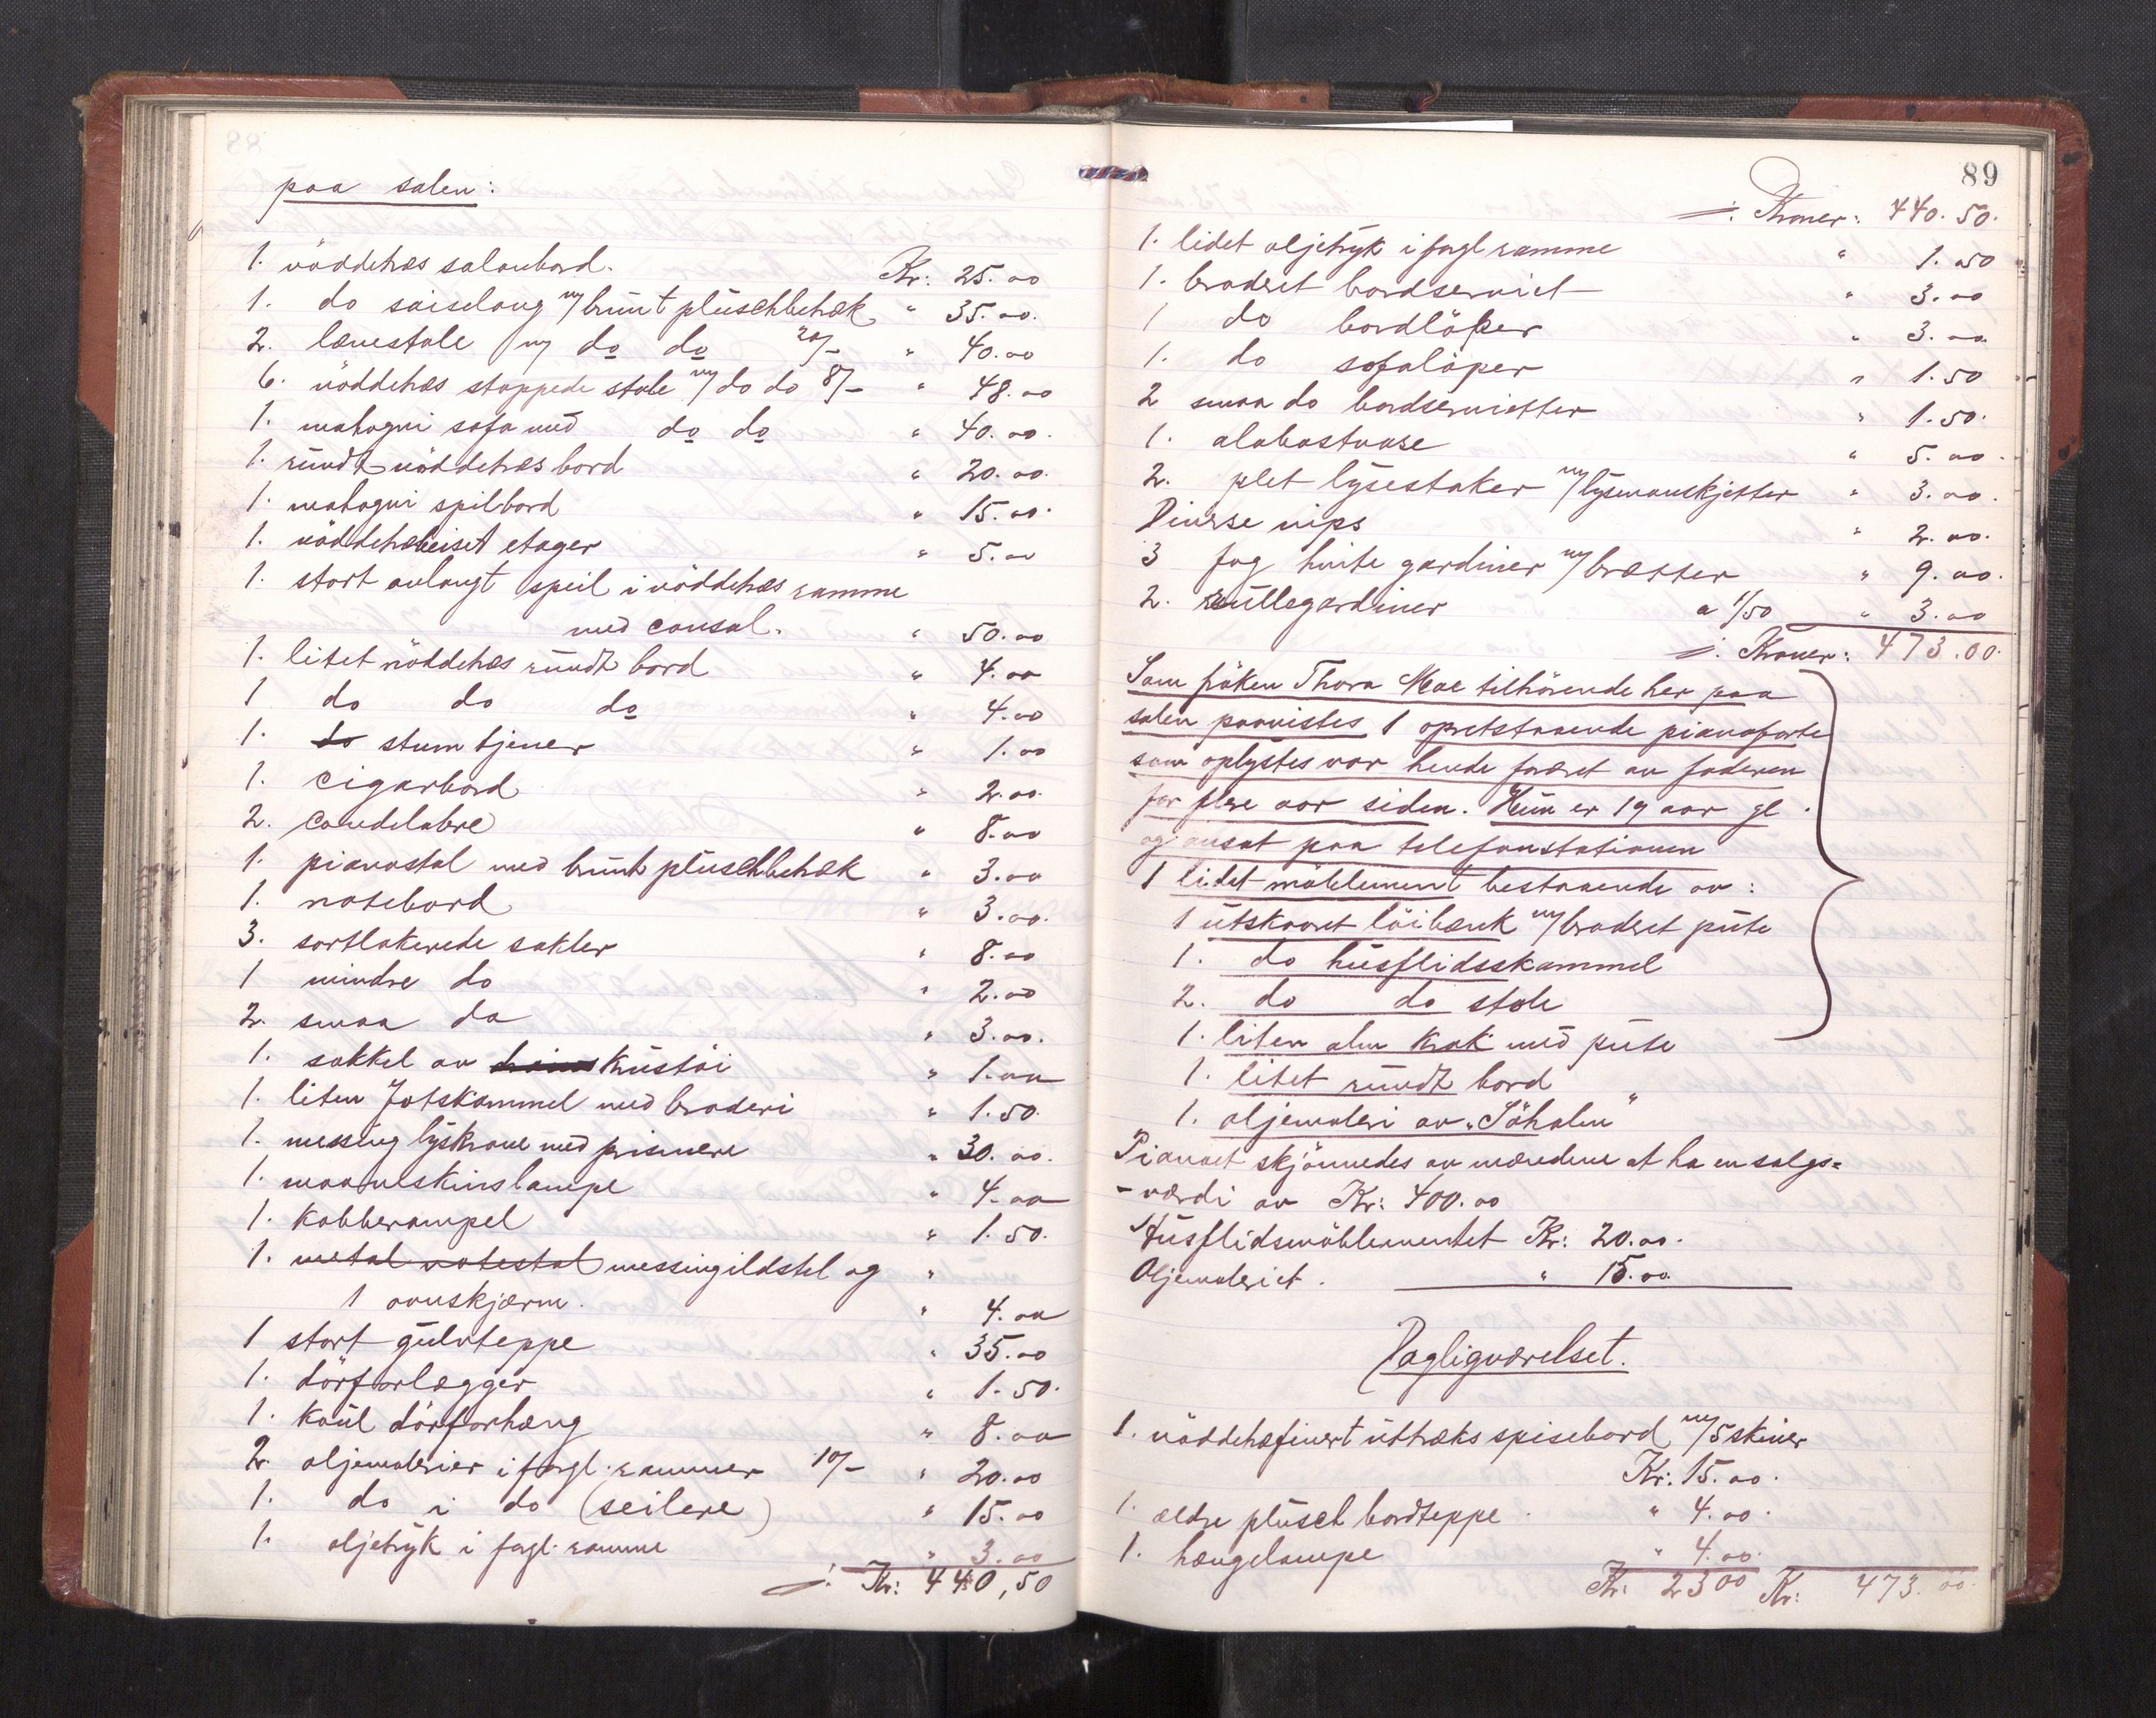 paa salen:
1. nöddetræs salonbord. Kr: 25.00
1. do saiselong m/ brunt plüschbetræk " 35.00.
2. lænestole m/ do do 20/- " 40.00
6. nöddetræs stoppede stole m/ do do 8/- " 48.00
1. mahogni sofa med do do " 40.00.
1. rundt nöddetræs bord " 20.00.
1. mahogni spilbord " 15.00.
1. nöddetræbeiset etager " 5.00
1. stort avlangt speil i nöddetræs ramme
med consol. " 50.00
1. litet nöddetræs rundt bord " 4.00
1 do do do " 4.00
1. do stumtjener " 1.00
1. cigarbord " 2.00.
2. candelabre " 8.00
1. pianostol med brunt plüschbetræk " 3.00
1. notebord " 3.00.
3. sortlakerede sokler " 8.00
1 mindre do " 2.00
2. smaa do " 3.00.
1. sokkel av kunstöi " 1.00
1. liten fotskammel med broderi " 1.50.
1. messing lyskrone med prismere " 30.00.
1. maaneskinslampe " 4.00
1. kobberampel " 1.50.
1. metal notestol messingildstel og "
1 ovnskjærm. " 4.00
1 stort gulvteppe " 35.00
1. dörforlægger " 1.50.
1. dörforhæng " 8.00
2. oljemalerier i forgl. rammer 10/- " 20.00
1. do i do (seilere) " 15.00
1. oljetryk i forgl. ramme " 3.00
Kr: 440,50
89
Kroner: 440.50.
1. lidet oljetryk i forgl ramme " 1.50
1. broderet bordserviet " 3.00
1 do bordlöper " 3.00
1. do sofalöper " 1.50
2 smaa do bordservietter " 1.50.
1. alabastvase " 5.00.
2. plet lysestaker m/ lysmanskjetter " 3.00.
Diverse nips " 2.00.
3 fag hvite gardiner m/ brætter " 9.00.
2. rullegardiner a 1/50 " 3.00
Kroner: 473.00.
Som fröken Thora Moe tilhörende her paa
salen paavistes 1 opretstaaende pianoforte
som oplystes var hende foræret av faderen
for flere aar siden. Hun er 19 aar gl.
og ansat paa telefonstationen
1 lidet möblement bestaaende av:
1 utskaaret löibænk m/ broderet pute
1. do husflidsskammel
2. do do stole
1. liten alm krak med pute
1. litet rundt bord
1. oljemaleri av "Söholm"
Pianoet skjönnedes av mændene at ha en salgs=
-værdi av Kr: 400.00
Husflidsmöblementet Kr: 20.00.
Oljemaleriet. " 15.00.
Dagligværelset.
1. nöddetræfinert uttræks spisebord m/ 5 skiver
Kr: 15.00.
1. ældre plüsch bordteppe. " 4.00.
1. hængelampe " 4.00.
Kr: 23 00 Kr: 473.00.